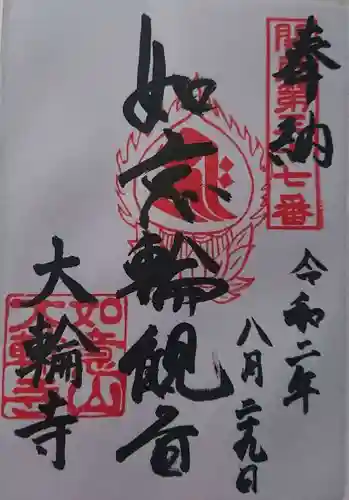 奉納
令和二年
八月二十九日
如意輪観音
大輪寺
如意山
大輪寺